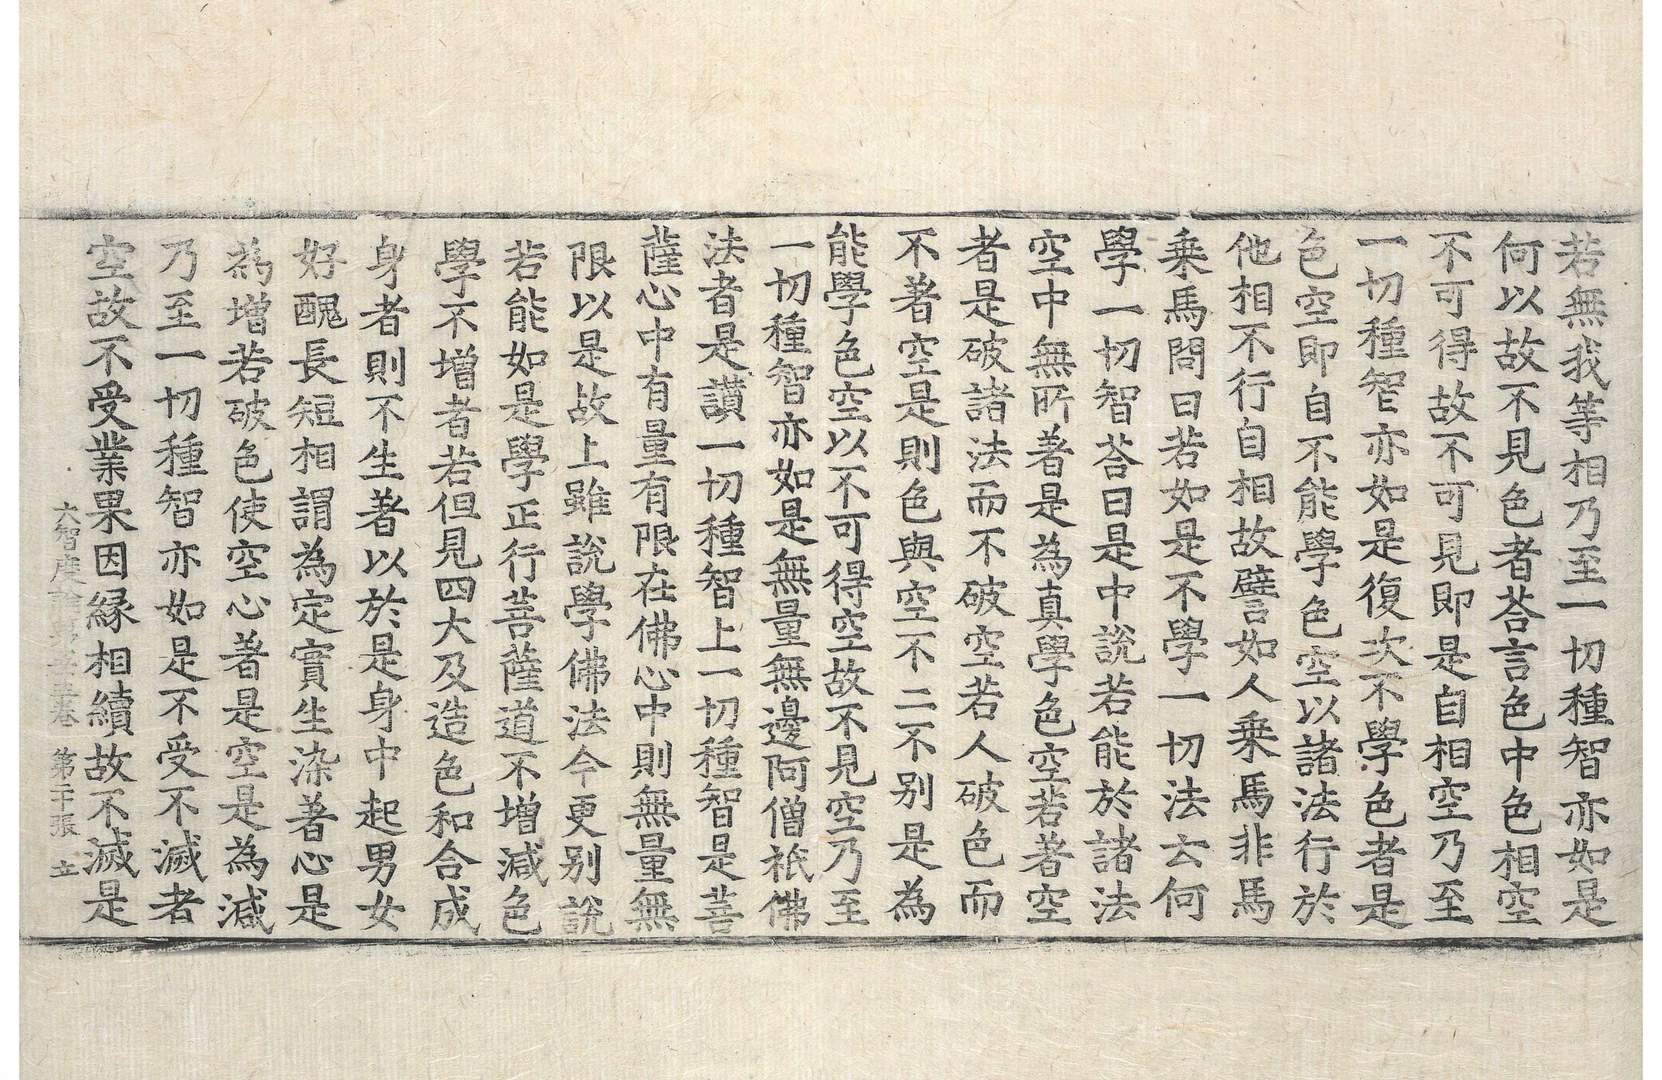 若無我等相乃至一切種智亦如是
何以故不見色者荅言色中色相空
不可得故不可見即是自相空乃至
一切種智亦如是復次不學色者是
色空即自不能學色空以諸法行於
他相不行自相故譬如人乗馬非馬
乗馬問曰若如是不學一切法云何
學一切智荅曰是中說若能於諸法
空中無所著是為真學色空若著空
者是破諸法而不破空若人破色而
不著空是則色與空不二不別是為
能學色空以不可得空故不見空乃至
一切種智亦如是無量無邊阿僧祇佛
法者是讚一切種智上一切種智是菩
薩心中有量有限在佛心中則無量無
限以是故上雖說學佛法今更別說
若能如是學正行菩薩道不增減色
學不增者若但見四大及造色和合成
身者則不生著以於是身中起男女
好醜長短相謂為定實生染著心是
為增若破色使空心著是空是為減
乃至一切種智亦如是不受不滅者
空故不受業果因縁相續故不滅是
大智度論第卷 第二十張 立